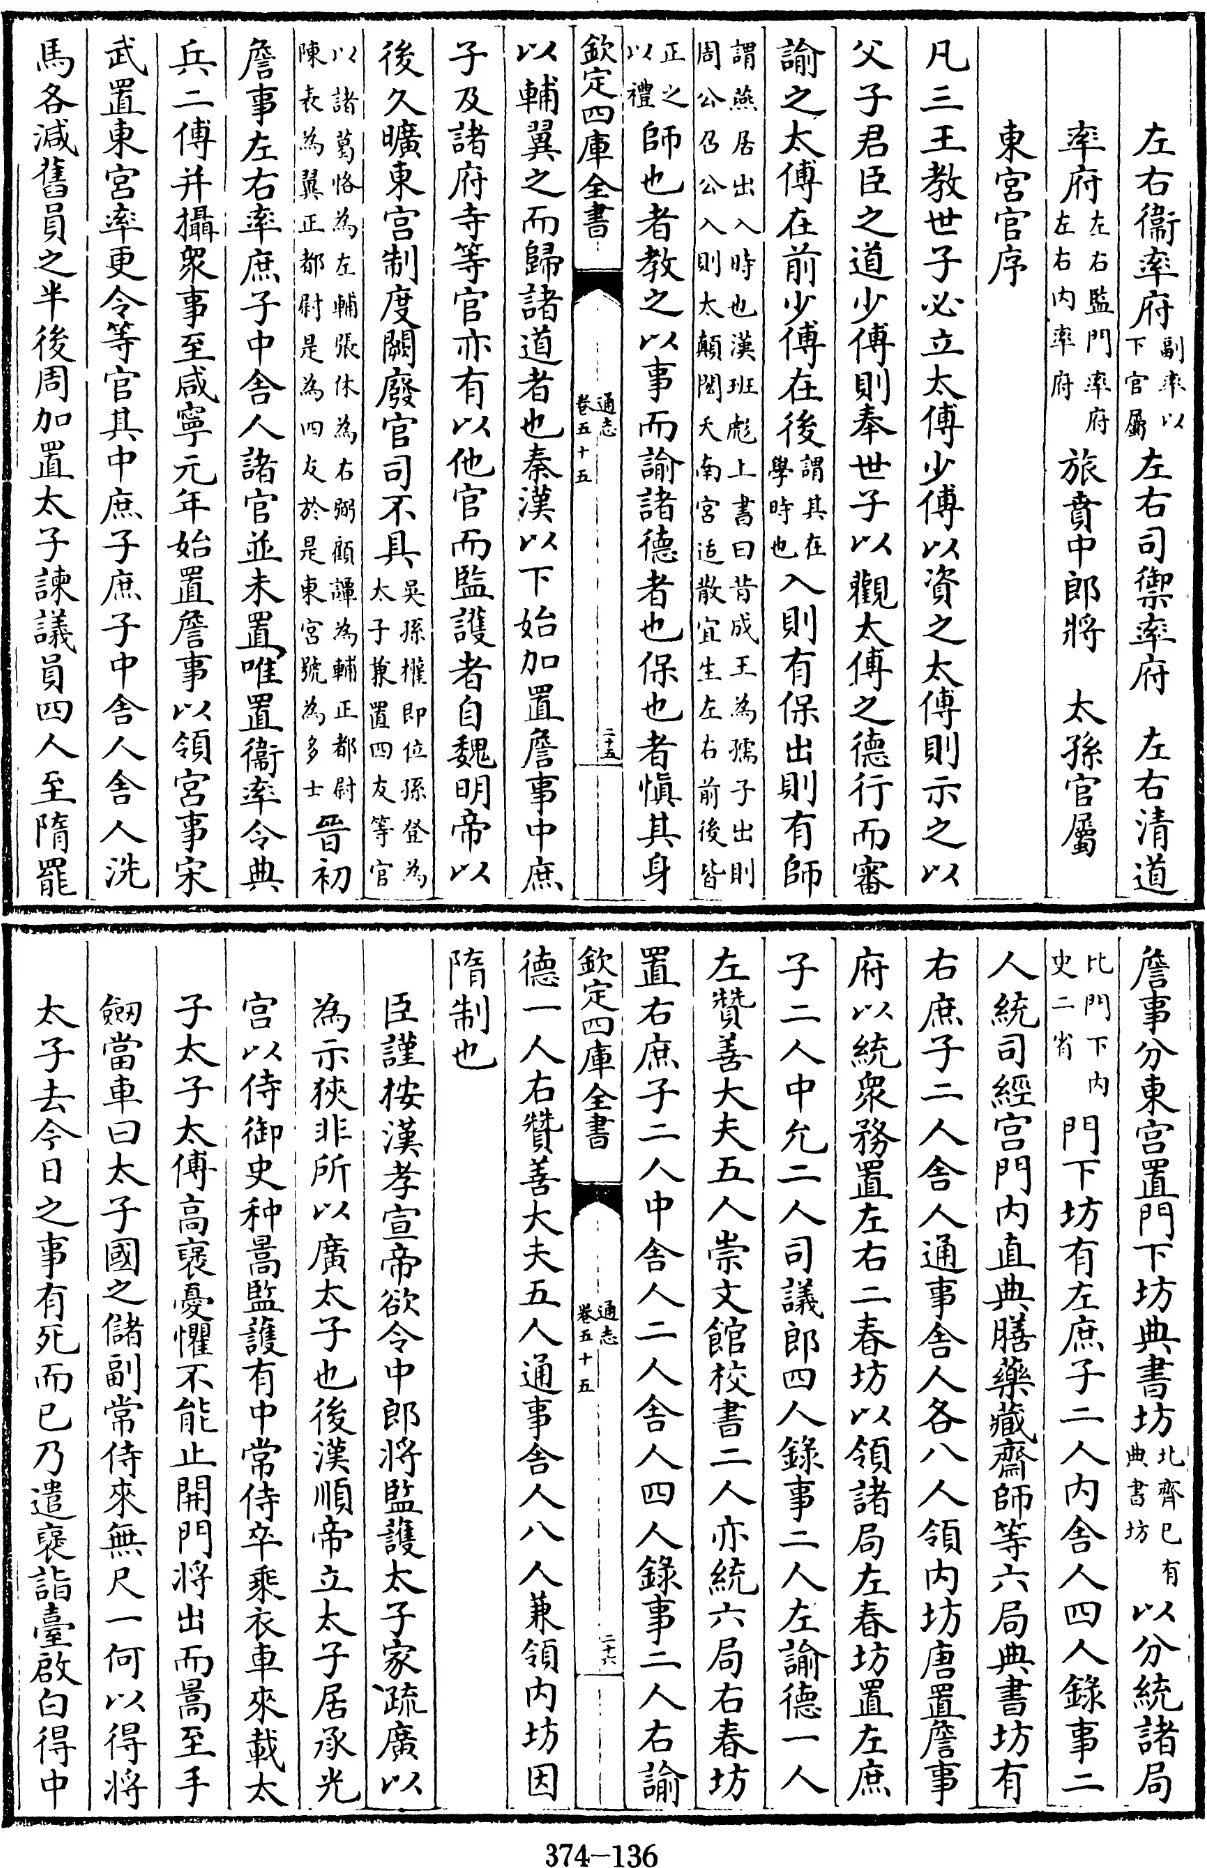 左右衞率府副率以下官屬左右司禦率府　左右清道
率府左右監門率府左右内率府　旅賁中郎將　太孫官屬
東宮官序
凡三王教世子必立太傅少傅以資之太傅則示之以
父子君臣之道少傅則奉世子以觀太傅之德行而審
諭之太傅在前少傅在後謂其在學時也入則有保出則有師
謂燕居出入時也漢班彪上書曰昔成王為孺子出則周公召公入則太顛閎夭南宮适散宜生左右前後皆
正之以禮師也者教之以事而諭諸德者也保也者愼其身
欽定四庫全書
通志
卷五十五
二十五
以輔翼之而歸諸道者也秦漢以下始加置詹事中庶
子及諸府寺等官亦有以他官而監護者自魏明帝以
後久曠東宮制度闕廢官司不具吳孫權即位孫登為太子兼置四友等官
以諸葛恪為左輔張休為右弼顧譚為輔正都尉陳表為翼正都尉是為四友於是東宮號為多士晉初
詹事左右率庶子中舍人諸官並未置唯置衞率令典
兵二傅并攝衆事至咸寧元年始置詹事以領宮事宋
武置東宮率更令等官其中庶子庶子中舍人舍人洗
馬各減舊員之半後周加置太子諫議員四人至隋罷
詹事分東宮置門下坊典書坊北齊已有典書坊以分統諸局
比門下内史二省門下坊有左庶子二人内舍人四人錄事二
人統司經宮門内直典膳藥藏齋師等六局典書坊有
右庶子二人舍人通事舍人各八人領内坊唐置詹事
府以統衆務置左右二春坊以領諸局左春坊置左庶
子二人中允二人司議郎四人錄事二人左諭德一人
左贊善大夫五人崇文館校書二人亦統六局右春坊
置右庶子二人中舍人二人舍人四人錄事二人右諭
欽定四庫全書
通志
卷五十五
二十六
德一人右贊善大夫五人通事舍人八人兼領内坊因
隋制也
臣謹按漢孝宣帝欲令中郎將監護太子家疏廣以
為示狹非所以廣太子也後漢順帝立太子居承光
宮以侍御史种暠監護有中常侍卒乘衣車來載太
子太子太傅高裦憂懼不能止開門將出而暠至手
劒當車曰太子國之儲副常侍來無尺一何以得將
太子去今日之事有死而已乃遣裦詣臺啟白得中
374-136